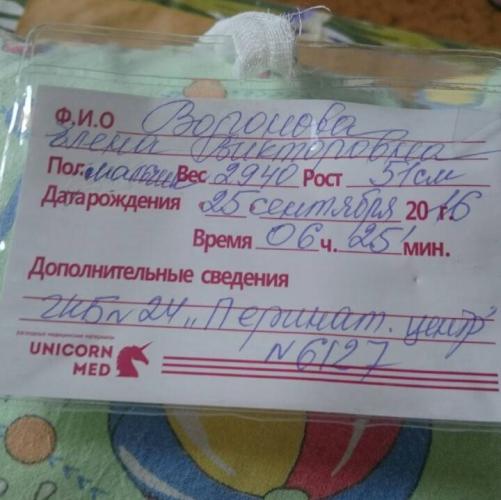 Ф.И.О Воронова
Елена Викторовна
Пол мальчик Вес 2940 Рост 51см
Дата рождения 25 сентября 2016 г.
Время 06 ч. 25 мин.
Дополнительные сведения
ГКБ №24 „Перинат. центр"
N 6127
расходные медицинские материалы
UNICORN
MED